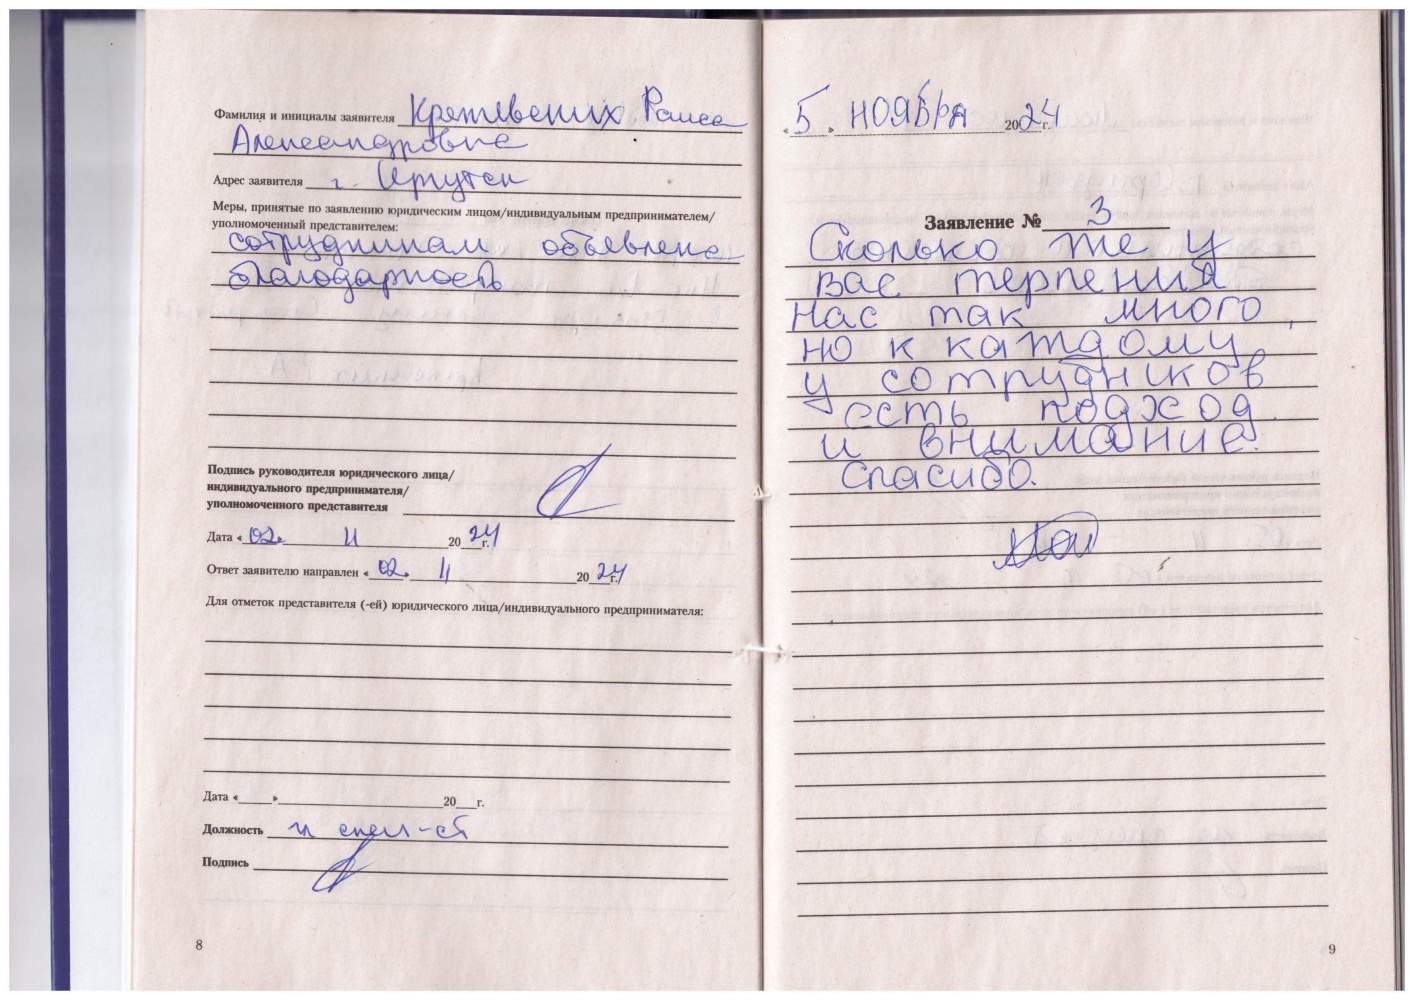 Фамилия и инициалы заявителя Раиса
Александровна
Адрес заявителя г. Иркутск
Меры, принятые по заявлению юридическим лицом/индивидуальным предпринимателем/
уполномоченный представителем:
сотрудникам объявлена
благодарность
Подпись руководителя юридического лица/
индивидуального предпринимателя/
уполномоченного представителя
Дата «02» 11 2024г.
Ответ заявителю направлен «02» 11 2024г.
Для отметок представителя (-ей) юридического лица/индивидуального предпринимателя:
Дата «___» 20__г.
Должность гл спец-ст
Подпись
8
«5» НОЯБРЯ 2024г.
Заявление № 3
Сколько же у
вас терпения
Нас так много,
но к каждому
у сотрудников
есть подход
и внимание.
Спасибо.
9